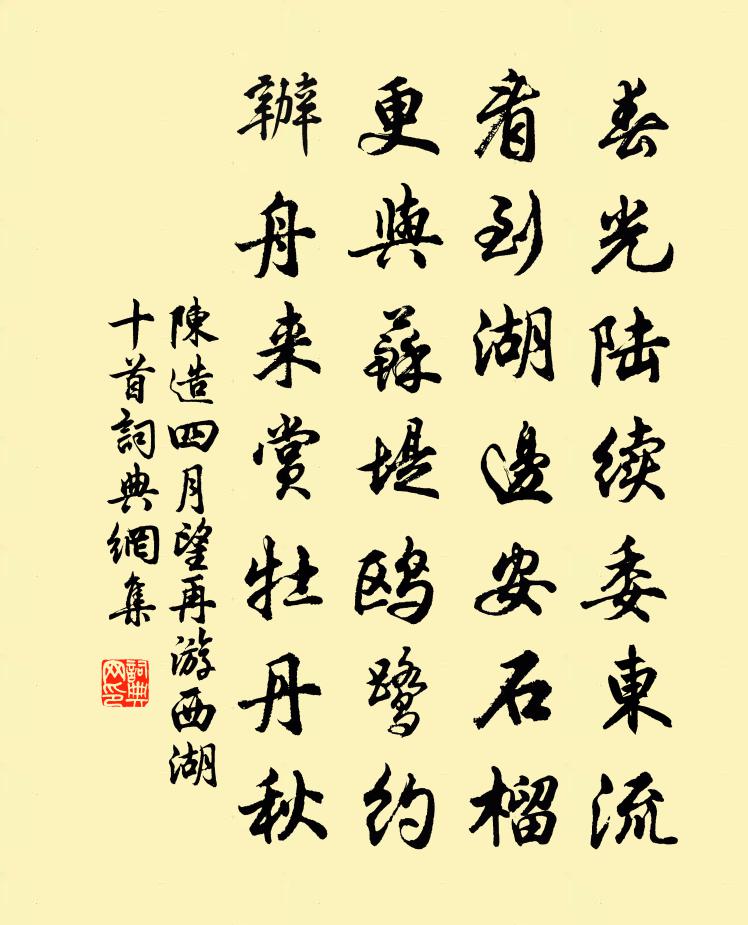 春光陆续委東流
看到湖邊安石榴
更與蘇堤鸥鹭約
辦舟来赏牡丹秋
陳造四月望再游西湖
十首詞典網集
詞典网印